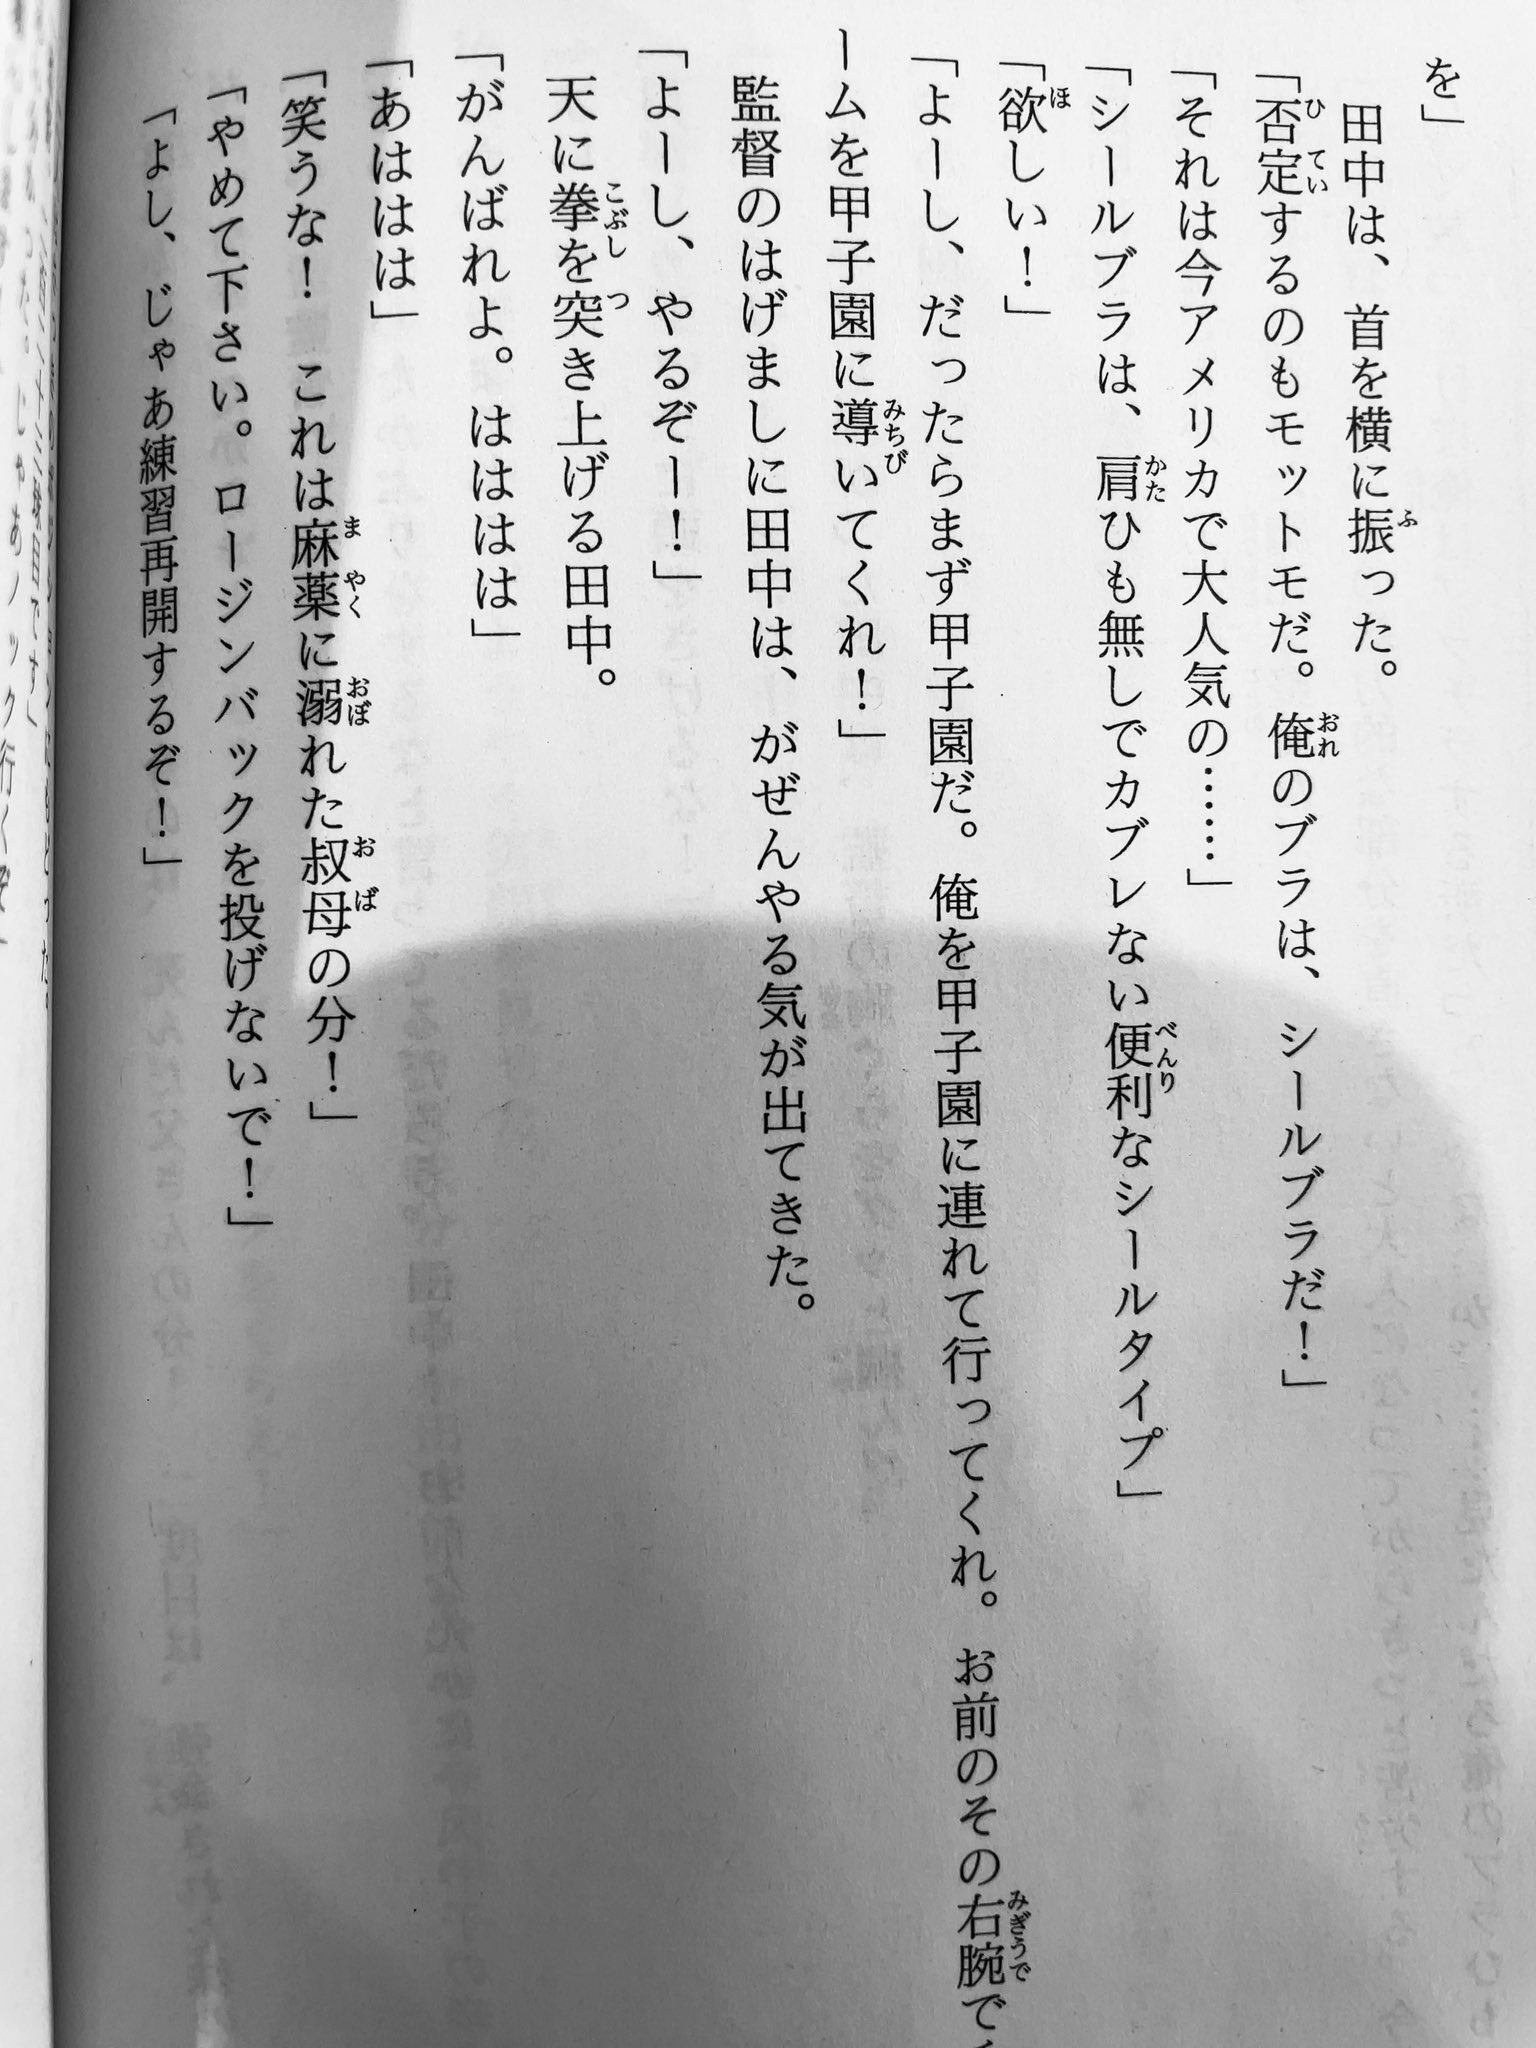 を」
田中は、首を横に振った。
「否定するのもモットモだ。俺のブラは、シールブラだ！」
「それは今アメリカで大人気の……」
「シールブラは、肩ひも無しでカブレない便利なシールタイプ」
「欲しい！」
「よーし、だったらまず甲子園だ。俺を甲子園に連れて行ってくれ。お前のその右腕で
ームを甲子園に導いてくれ！」
監督のはげましに田中は、がぜんやる気が出てきた。
「よーし、やるぞー！」
天に拳を突き上げる田中。
「がんばれよ。はははは」
「あははは」
「笑うな！　これは麻薬に溺れた叔母の分！」
「やめて下さい。ロージンバックを投げないで！」
「よし、じゃあ練習再開するぞ！」